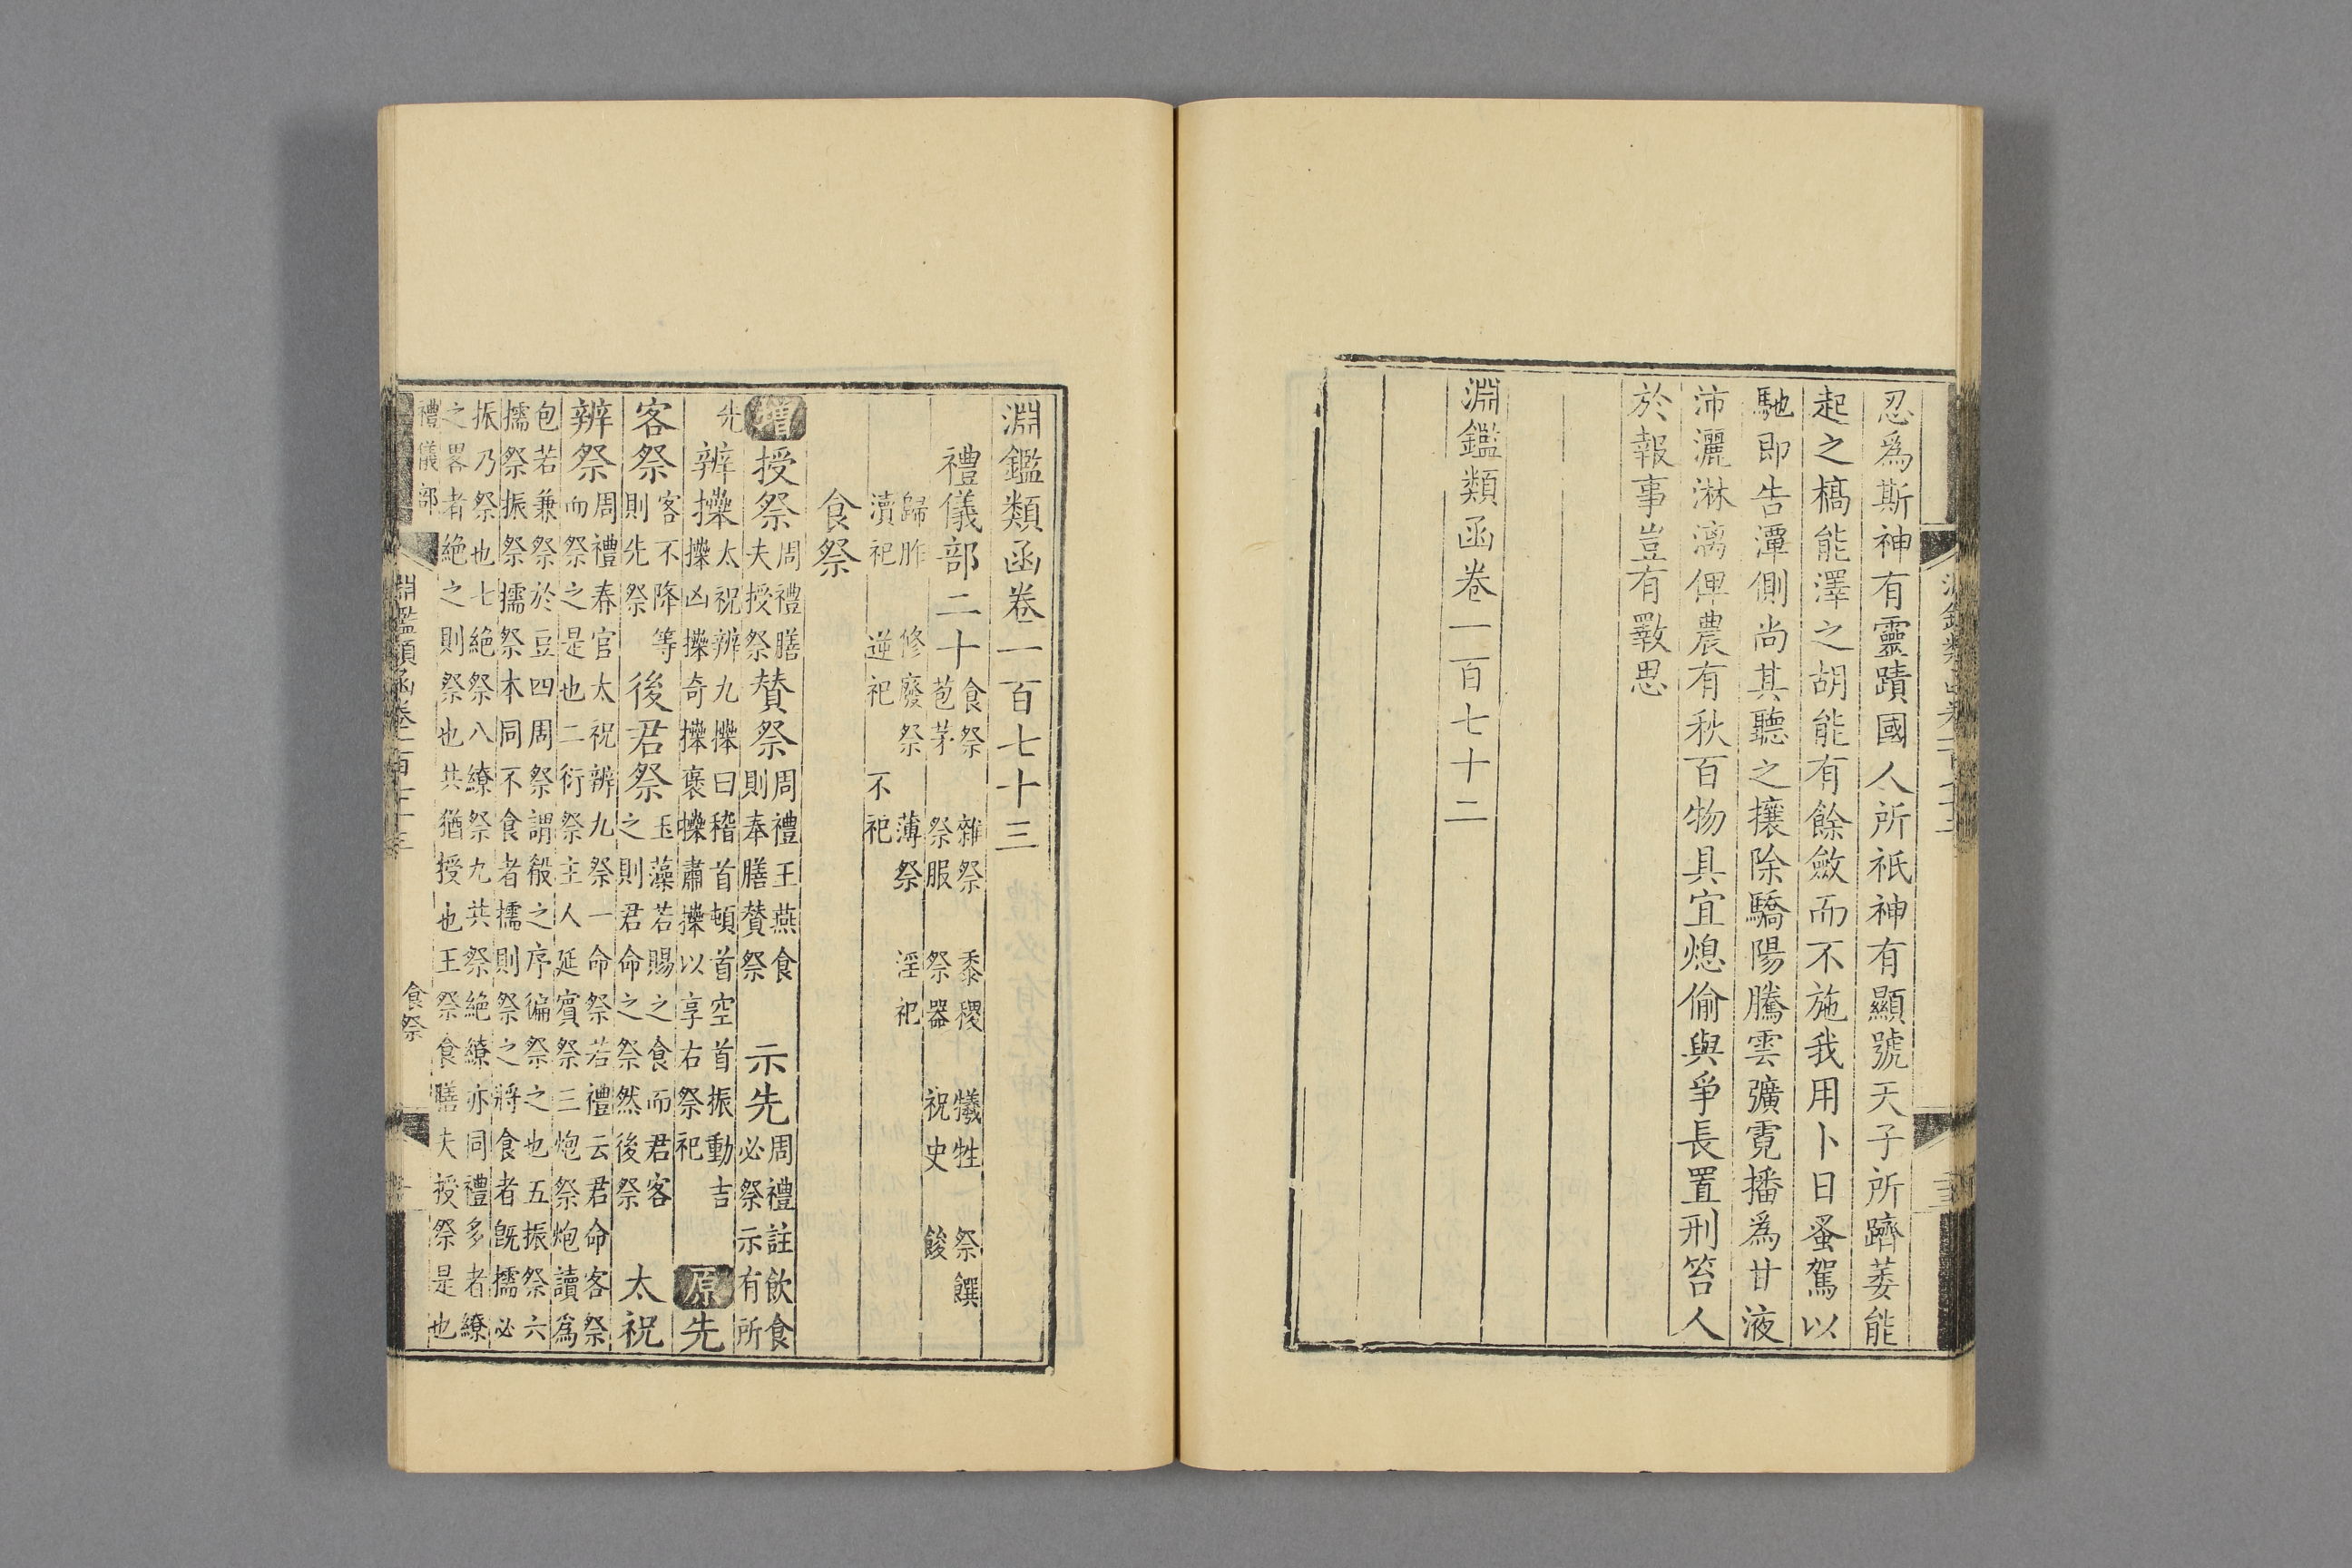 忍爲斯神有靈蹟國人所祇神有顯號天子所躋萎能
起之槁能澤之胡能有餘斂而不施我用卜日蚤駕以
馳卽告潭側尚其聽之攘除驕陽騰雲彍霓播爲甘液
沛灑淋漓俾農有秋百物具宜熄偷與爭長置刑笞人
於報事豈有斁思
淵鑑類函卷一百七十二
淵鑑類函卷一百七十三
禮儀部二十
食祭 雜祭 黍稷 犧牲 祭饌
苞茅 祭服 祭器 祝史 餕
歸胙 修廢祭 薄祭 淫祀
瀆祀 逆祀 不祀
食祭
增授祭
周禮膳
夫授祭
贊祭
周禮王燕食
則奉膳贊祭
示先
周禮註飲食
必祭示有所
先
辨𢷎
太祝辨九𢷎曰稽首頓首空首振動吉
𢷎凶𢷎奇𢷎褒𢷎肅𢷎以享右祭祀
原先
客祭
客不降等
則先祭
後君祭
玉藻若賜之食而君客
之則君命之祭然後祭
太祝
辨祭
周禮春官太祝辨九祭一命祭若禮云君命客祭
而祭之是也二衍祭主人延賓祭三炮祭炮讀爲
包若兼祭於豆四周祭謂殽之序徧祭之也五振祭六
擩祭振祭擩祭本同不食者擩則祭之將食者旣擩必
振乃祭也七絕祭八繚祭九共祭絕繚亦同禮多者繚
之畧者絕之則祭也共猶授也王祭食膳夫授祭是也
禮儀部
淵鑑類函卷一百七十三
食祭